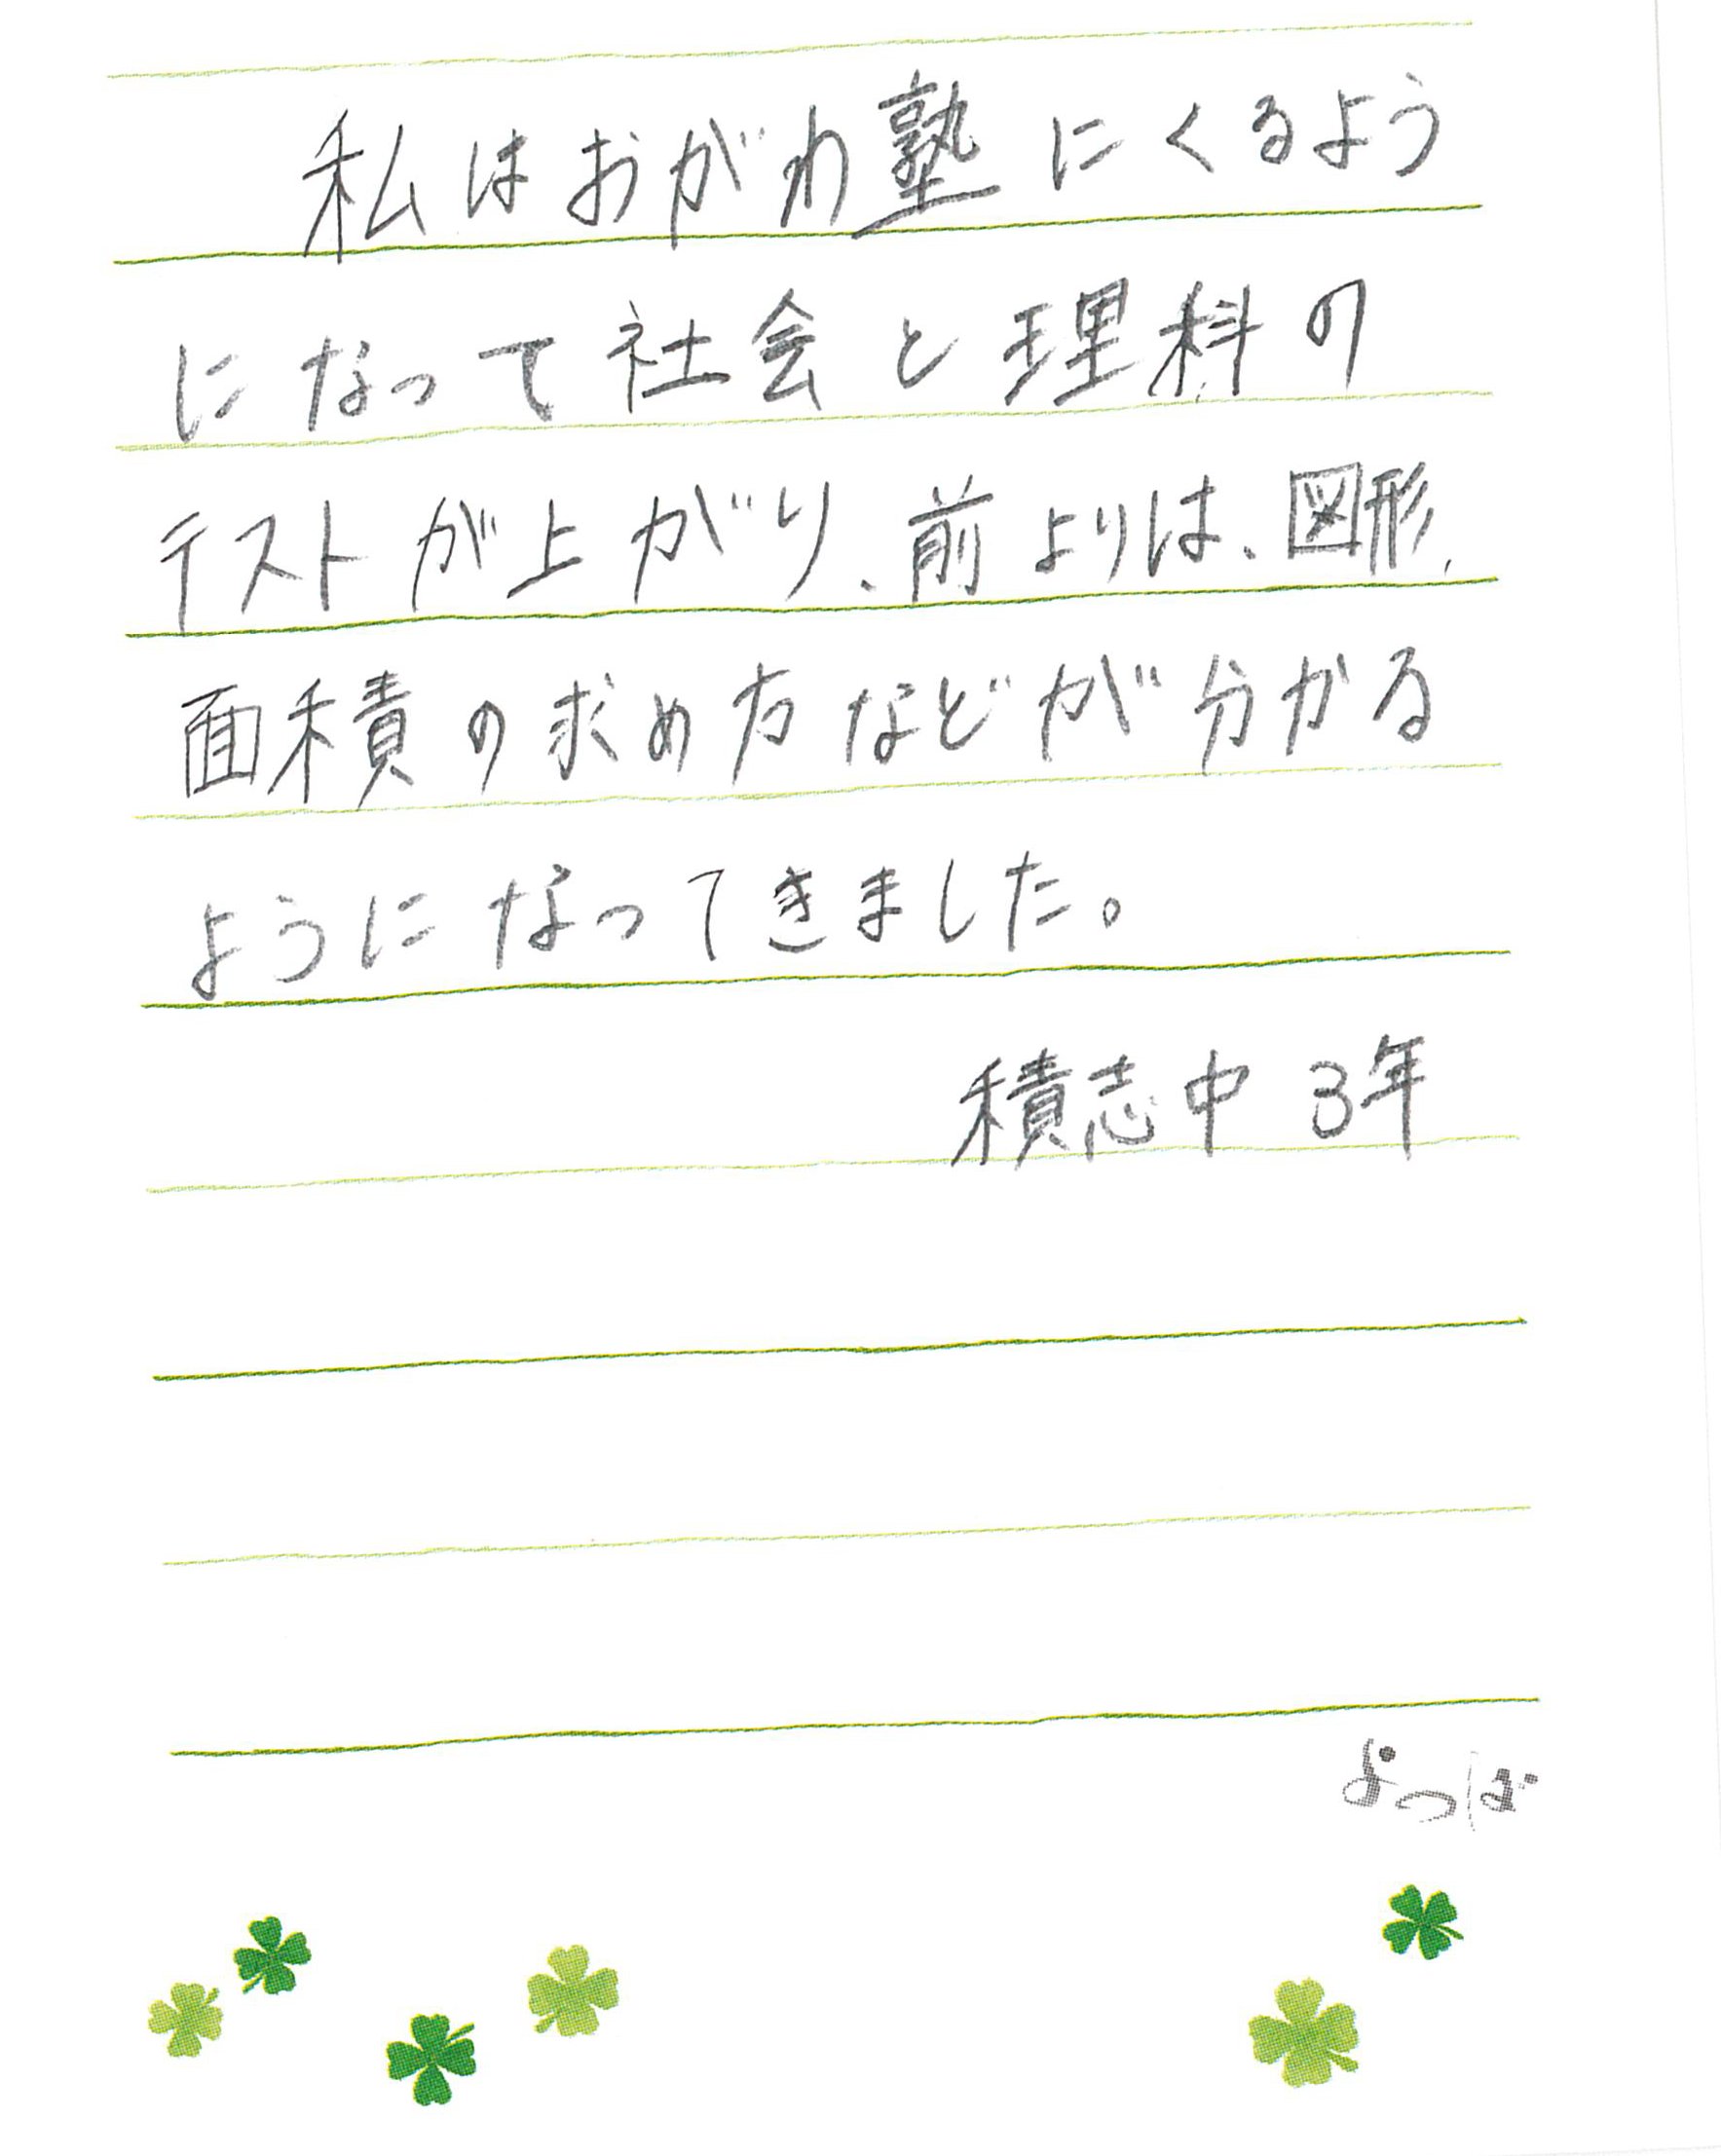 私はおがわ塾にくるよう
になって社会と理科の
テストが上がり、前よりは、図形、
面積の求め方などが分かる
ようになってきました。
積志中 3年
よつば